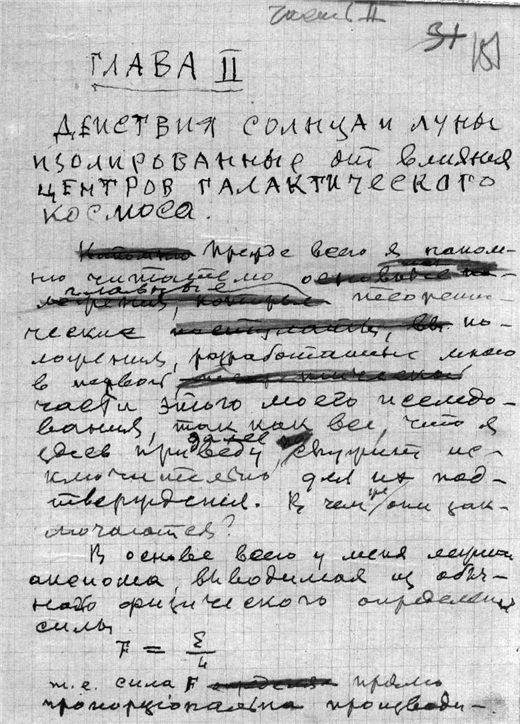 часть II
31
ГЛАВА II
ДЕЙСТВИЯ СОЛНЦА И ЛУНЫ
ИЗОЛИРОВАННЫЕ от влияния
ЦЕНТРОВ ГАЛАКТИЧЕСКОГО
КОСМОСА.
Прежде всего я напом-
ню читателю
главные теорети-
ческие по-
ложения, разработанные мною
в первой
части этого моего исследо-
вания, так как все, что я
здесь далее приведу, служит ис-
ключительно для их под-
тверждения. В чем же они зак-
лючаются?
В основе всего у меня лежит
аксиома, выводимая из обыч-
ного физического определения
силы
F =
т.е. сила F прямо
пропорциональна производи-